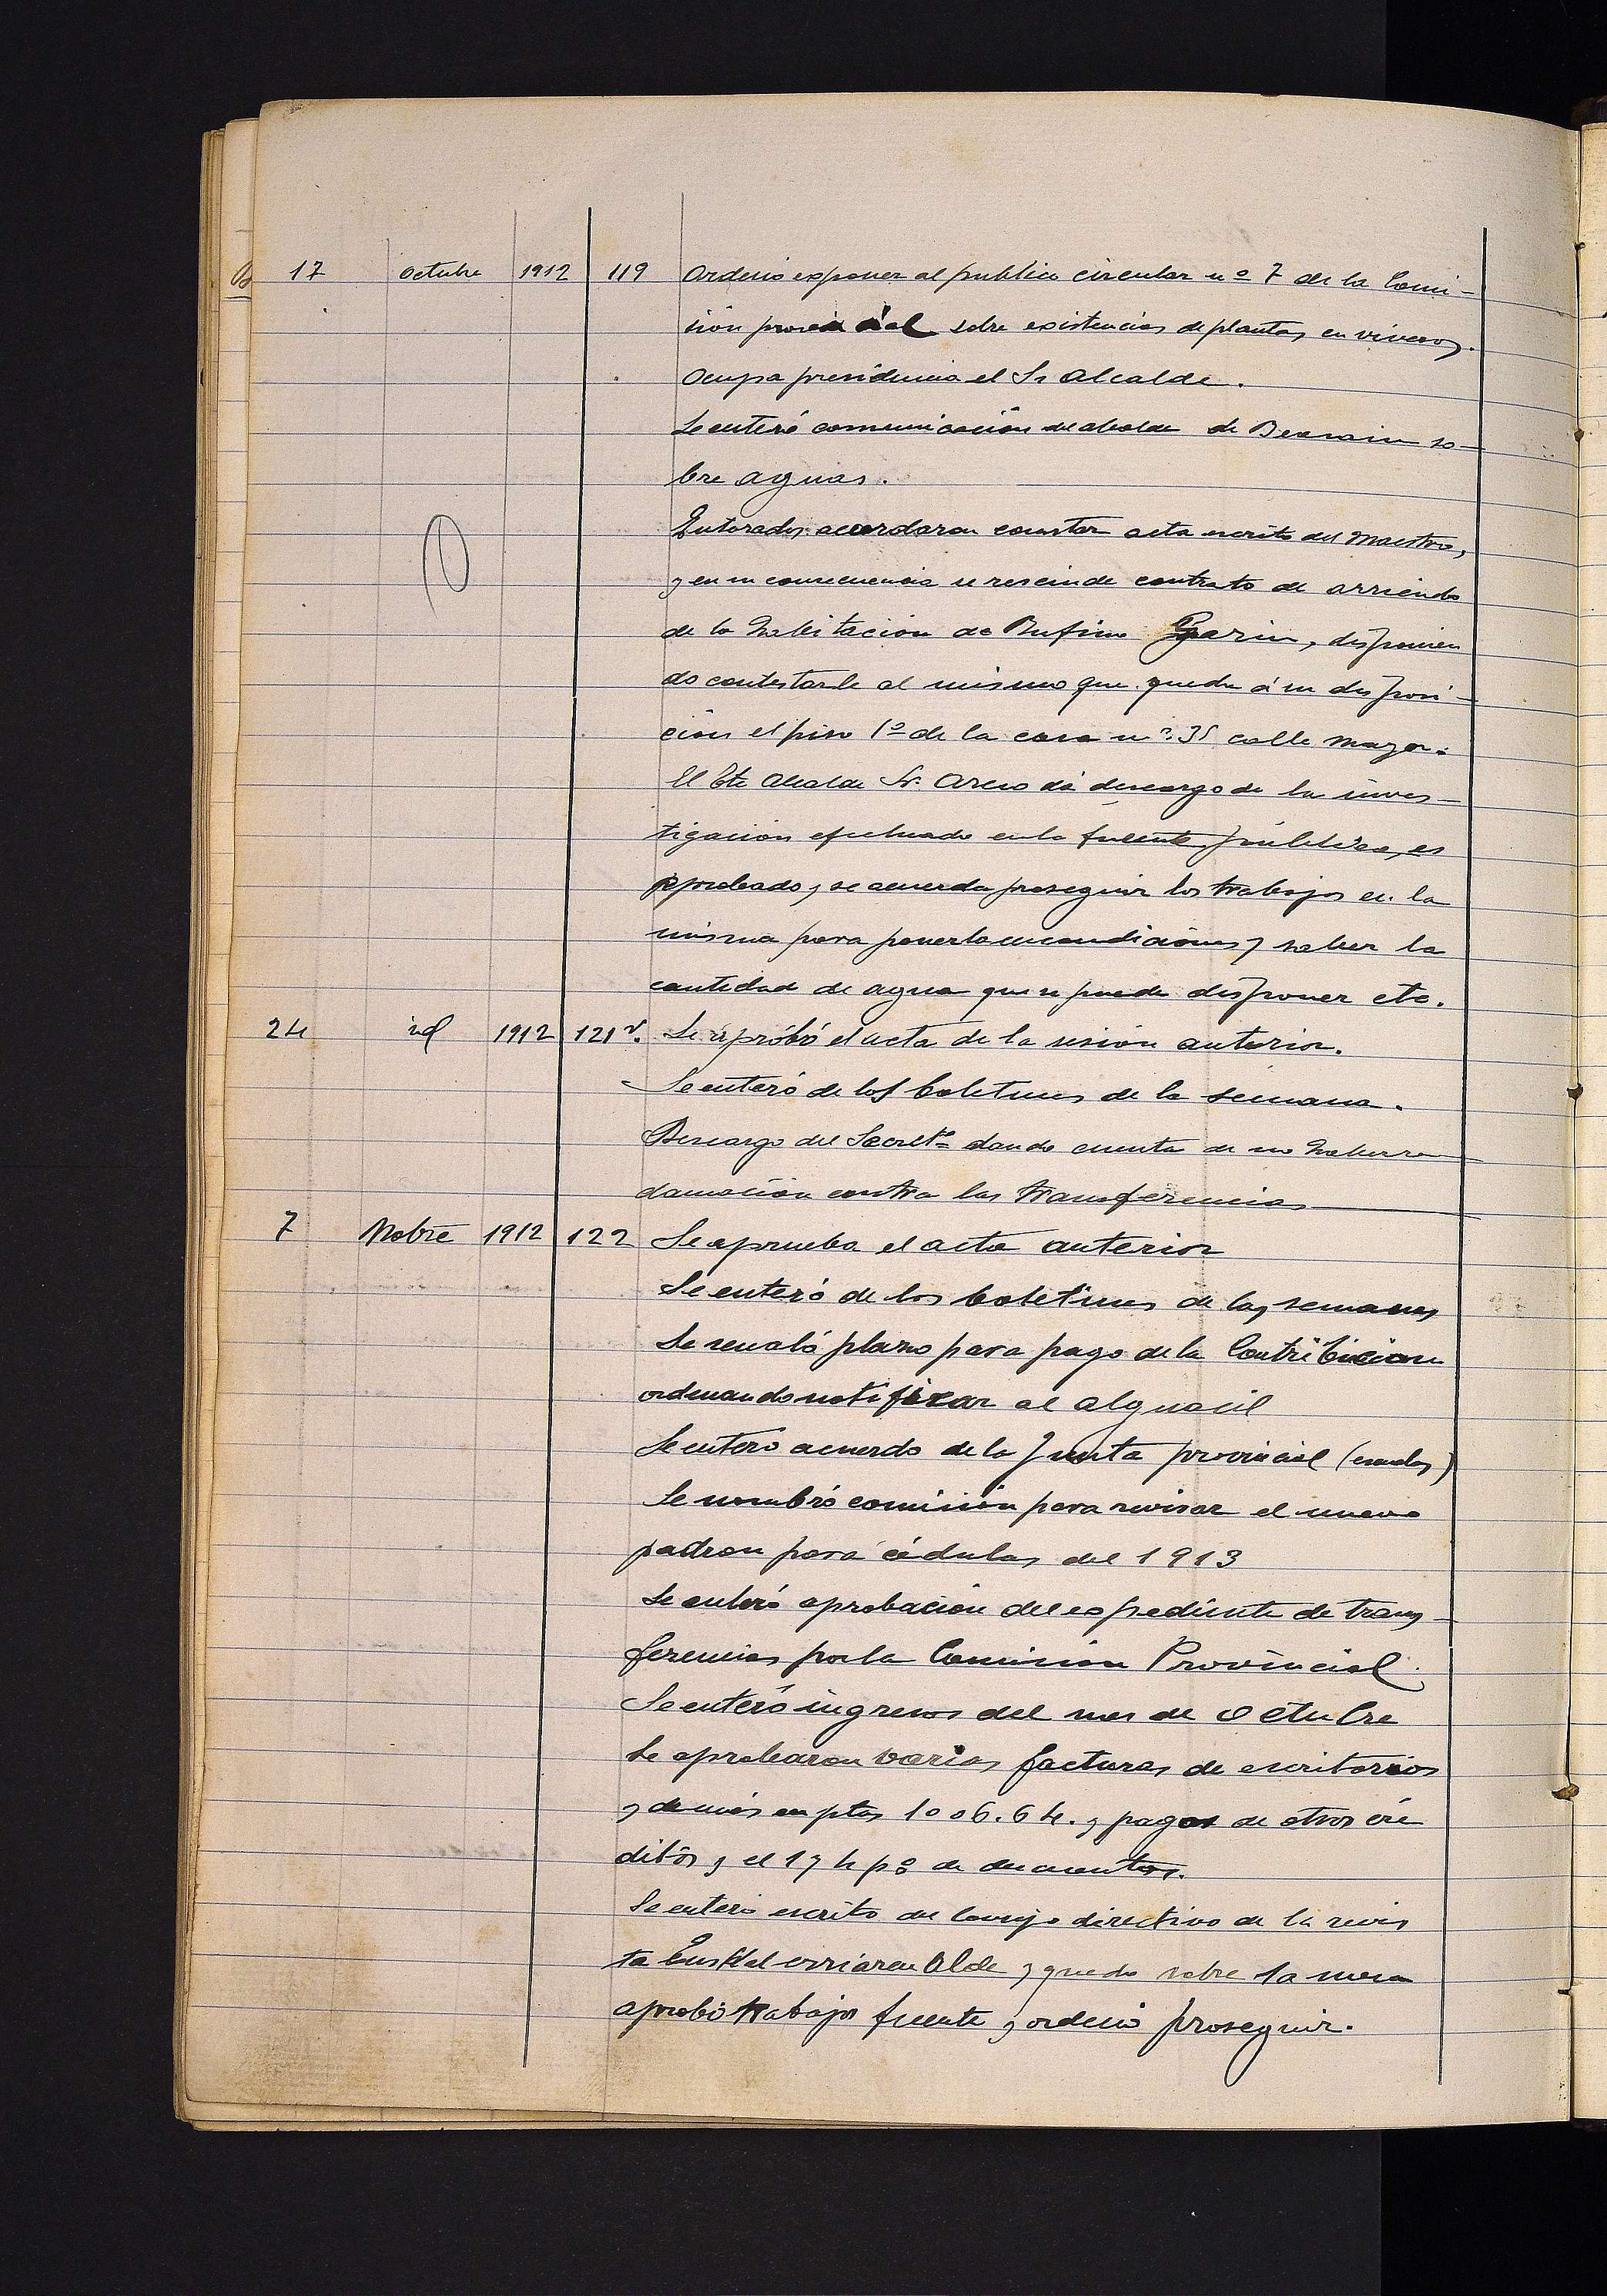 17 Octubre 1912 119 Ordenó exponer al publico circular nº 7 de la Comi-
sión provincial sobre existencias de plantas en viveros.
Ocupa presidencia el Sr Alcalde.
Se enteró comunicación de alcalde de Beasain so-
bre aguas.
Enterados acordaron constar acta escrito del Maestro,
y en su consecuencia se rescinde contrato de arriendo
de la habitación de Rufino Garin, disponien
do contestarle al mismo que queda á su disposi-
ción el piso 1º de la casa nº 35 calle mayor.
El Tte Alcalde Sr. dá descargo de la inves-
tigación efectuada en la fuente pública, es
aprobado, y se acuerda proseguir los trabajos en la
misma para ponerla en condiciones y saber la
cantidad de agua que se puede disponer etc.
24 id 1912 121v. Se apróbó el acta de la sesión anterior.
Se enteró de los boletines de la semana.
Descargo del Secretº dando cuenta de no haber re
clamación contra las transferencias
7 Nobre 1912 122 Se aprueba el acta anterior
Se enteró de los boletines de las semanas
Se senaló plazo para pago de la Contribución
ordenando notificar al alguacil
Se enteró acuerdo de la Junta provincial (escuelas)
Se nombró comisión para revisar el nuevo
padron para cédulas del 1913
Se enteró aprobación del expediente de trans-
ferencias por la Comisión Provincial.
Se enteró ingresos del mes de Octubre
Se aprobaron varias facturas de escritorios
y demás en ptas 1006.64. y pagos de otros cré
ditos y el 1 y 4 p% de descuentos.
Se enteró escrito del Consejo directivo de la revis
ta Euskalerriaren Alde y queda sobre la mesa
aprobó trabajos fuente y ordenó proseguir.